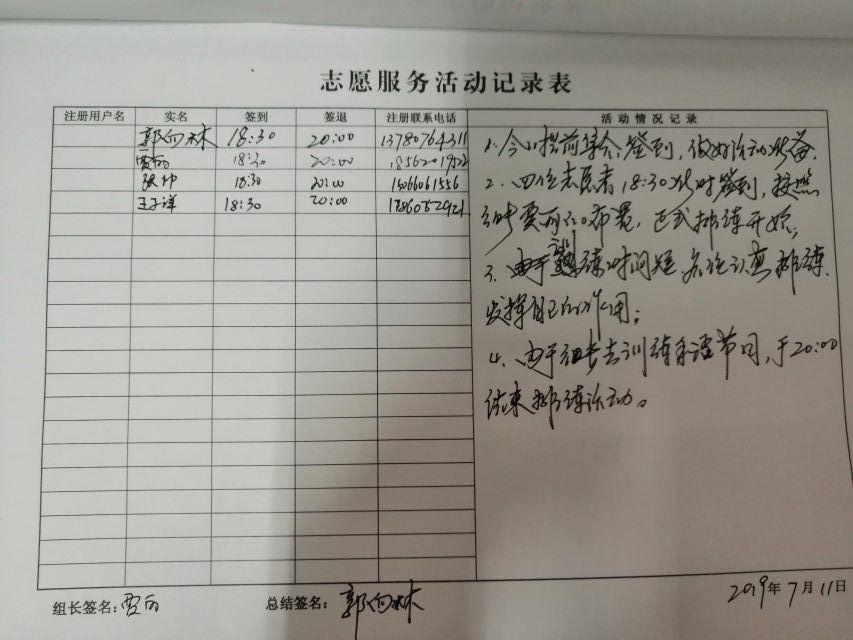 志愿服务活动记录表
注册用户名 实名 签到 签退 注册联系电话 活动情况记录
郭向林 18:30 20:00 13780764311
贾 18:30 20:00
张帅 18:30 20:00 15066061556
王子洋 18:30 20:00
1. 提前集合签到,做好活动准备。
2. 四位志愿者18:30准时签到,按照
要求布置,正式排练开始;
3. 由于训练时间短,认真排练,
发挥自己的作用;
4. 由于组长去训练节目,于20:00
结束排练活动。
组长签名: 总结签名:郭向林 2019年7月11日